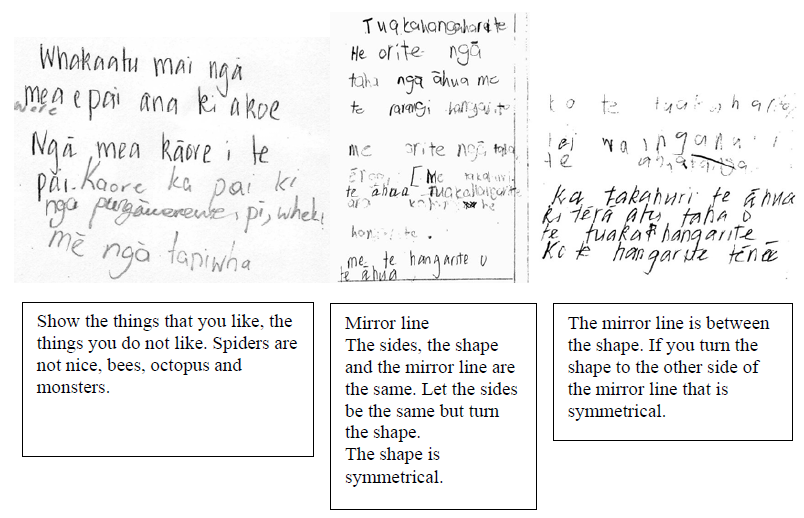 Whakaatu mai ngā
mea e pai ana ki a koe
Ngā mea kāore i te
pai. Kaore ka pai ki
nga pungāwerewe, pī, wheke
mē ngà taniwha
Tuakahangaharite
He orite ngā
taha nga āhua me
te rarangi hangarite
me orite ngā taha
[Me takahuri
te āhua Tuakahangarite
me te hangarite o
te āhua
ko te
te
ka takahuri te āhua
ki tērā atu taha o
te tuaka hangarite
Ko te hangarite tēnā
Show the things that you like, the
things you do not like. Spiders are
not nice, bees, octopus and
monsters.
Mirror line
The sides, the shape
and the mirror line are
the same. Let the sides
be the same but turn
the shape.
The shape is
symmetrical.
The mirror line is between
the shape. If you turn the
shape to the other side of
the mirror line that is
symmetrical.